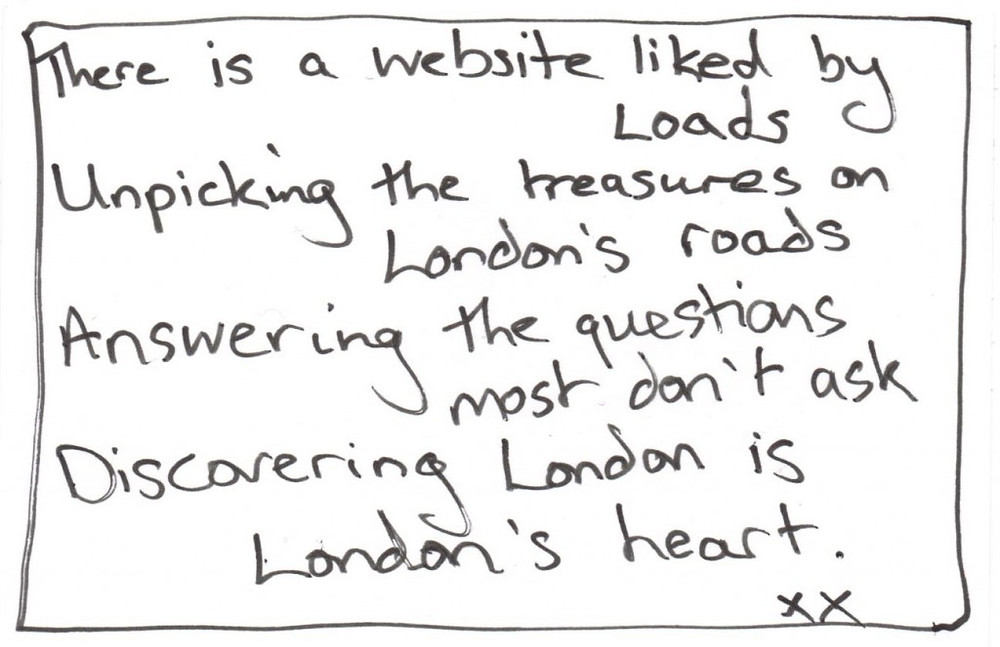 There is a website liked by
Loads
Unpicking the treasures on
London's roads
Answering the questions
most don't ask
Discovering London is
London's heart.
xx